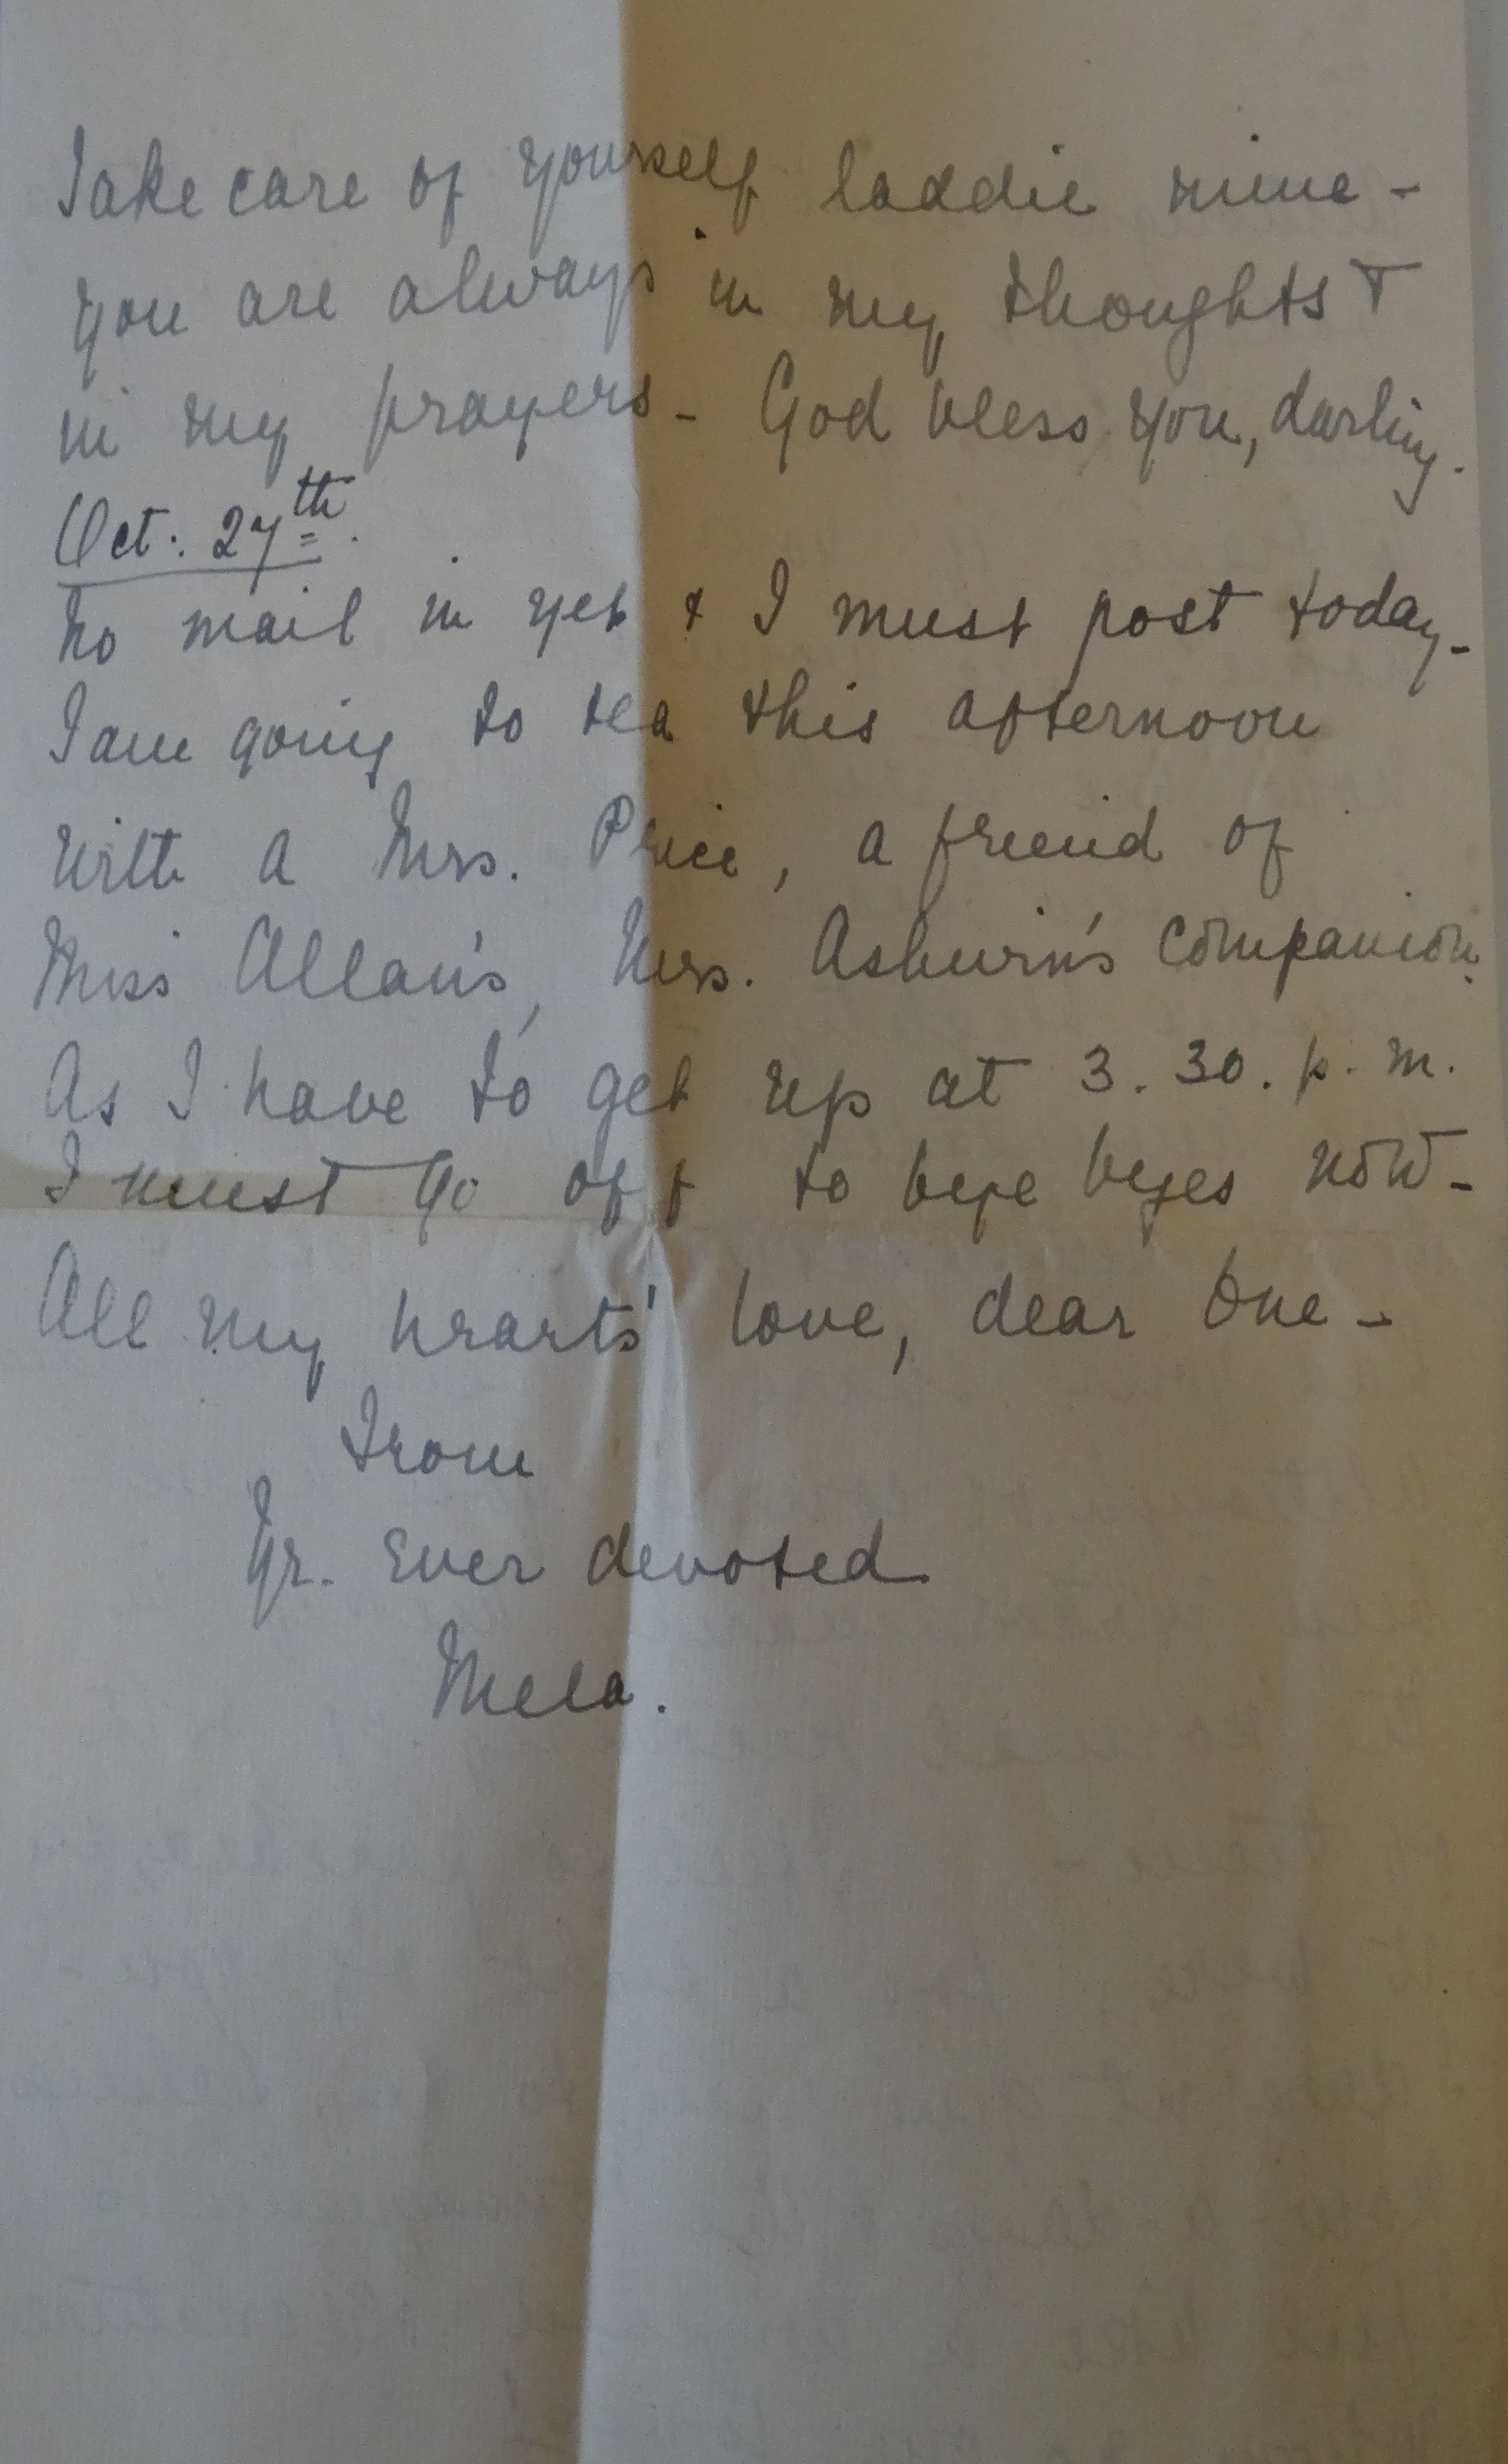 Take care of yourself laddie mine -
you are always in my thoughts &
in my prayers - God bless you, darling.
Oct. 27th.
No mail in yet & I must post today -
I am going to tea this afternoon
with a Mrs. Price, a friend of
Miss Allan's, Mrs. Ashwin's companion.
As I have to get up at 3.30. p.m.
I must go off to bye byes now -
All my hearts' love, dear One -
From
Yr. ever devoted
Mela.